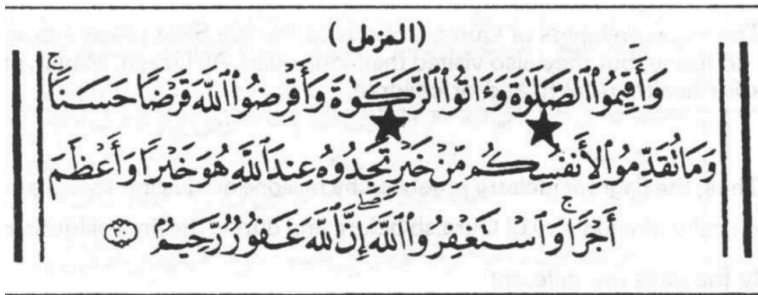 (المزمل)
وَأَقِيمُواْ ٱلصَّلَوٰةَ وَءَاتُواْ ٱلزَّكَوٰةَ وَأَقْرِضُواْ ٱللَّهَ قَرْضًا حَسَنًا ۚ
وَمَا تُقَدِّمُواْ لِأَنفُسِكُم مِّنْ خَيْرٍ تَجِدُوهُ عِندَ ٱللَّهِ هُوَ خَيْرًا وَأَعْظَمَ
أَجْرًا ۚ وَٱسْتَغْفِرُواْ ٱللَّهَ ۖ إِنَّ ٱللَّهَ غَفُورٌ رَّحِيمٌۢ